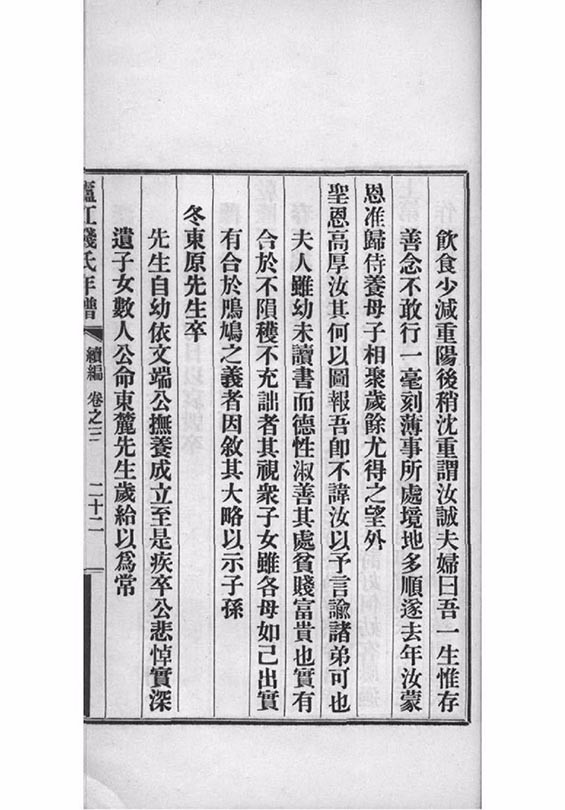 飲食少減重陽後稍沈重謂汝誠夫婦曰吾一生惟存
善念不敢行一毫刻薄事所處境地多順遂去年汝蒙
恩准歸侍養母子相聚歲餘尤得之望外
聖恩高厚汝其何以圖報吾卽不諱汝以予言諭諸弟可也
夫人雖幼未讀書而德性淑善其處貧賤富貴也實有
合於不隕穫不充詘者其視衆子女雖各母如己出實
有合於鳲鳩之義者因敘其大略以示子孫
冬東原先生卒
先生自幼依文端公撫養成立至是疾卒公悲悼實深
遺子女數人公命東麓先生歲給以爲常
廬江錢氏年譜 續編 卷之三 二十二